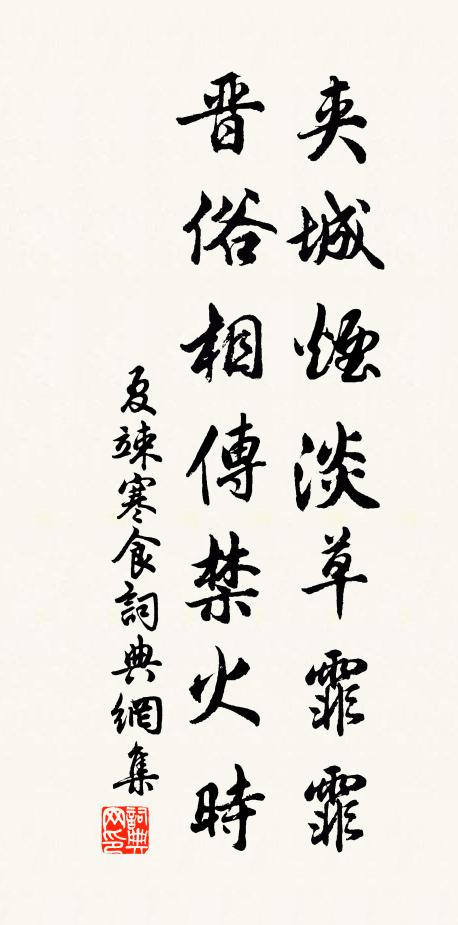 夹城煙淡草霏霏
晋俗相傳禁火時
夏竦寒食詞典網集
詞典网印